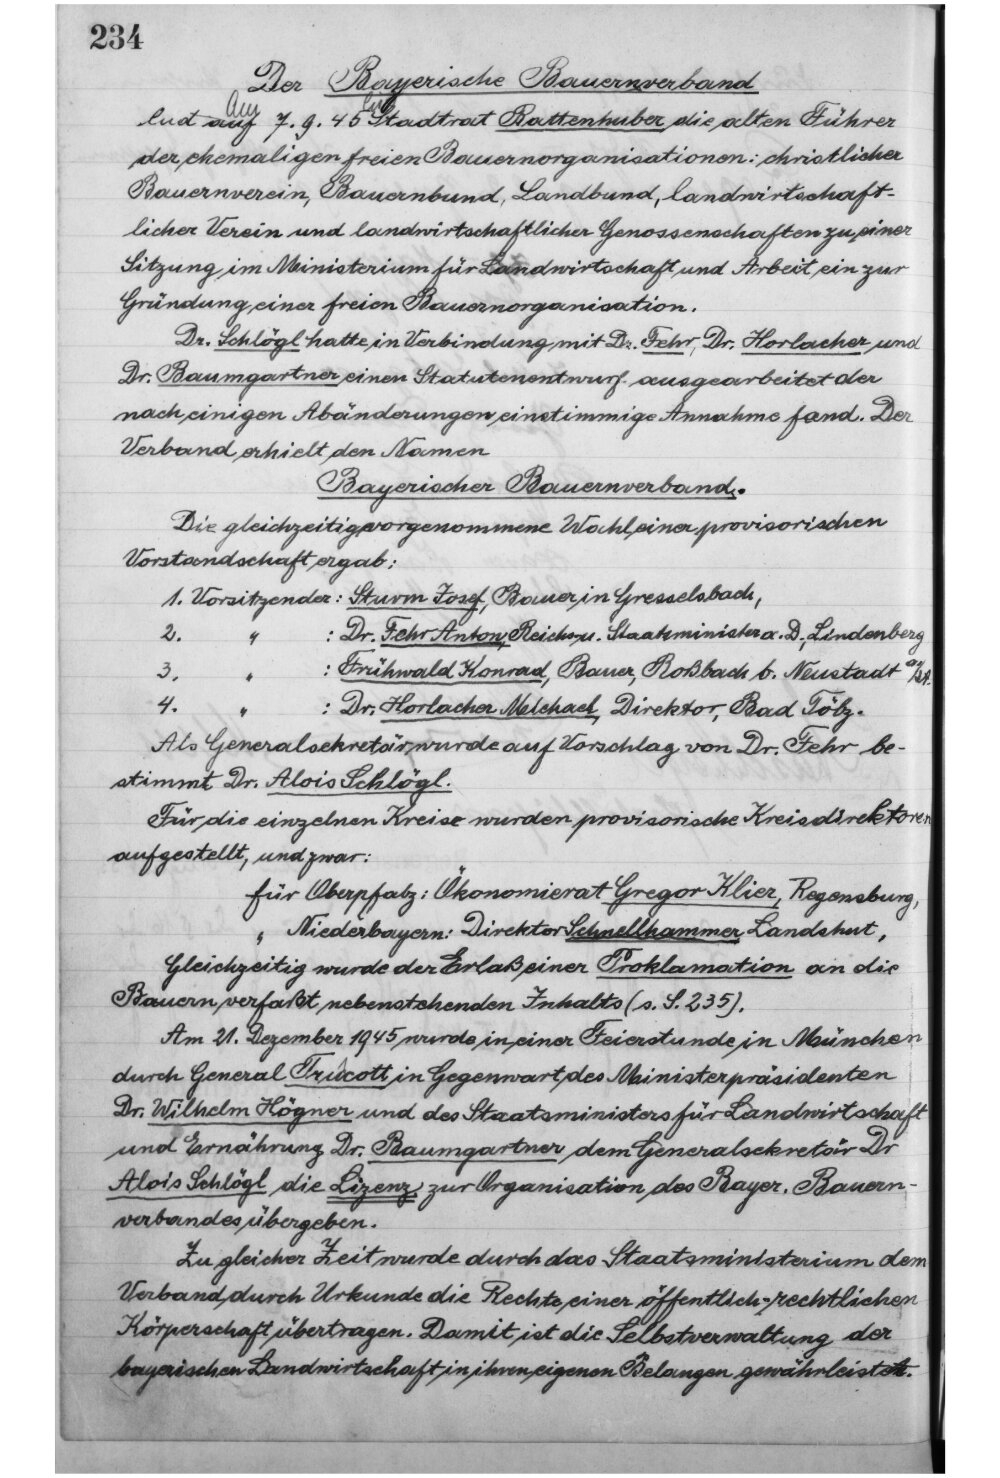 234
Der Bayerische Bauernverband
lud am 7.9.45 lud Stadtrat Battenhuber die alten Führer
der ehemaligen freien Bauernorganisationen: christlicher
Bauernverein, Bauernbund, Landbund, landwirtschaft-
licher Verein und landwirtschaftlicher Genossenschaften zu einer
Sitzung im Ministerium für Landwirtschaft und Arbeit ein zur
Gründung einer freien Bauernorganisation.
Dr. Schlögl hatte in Verbindung mit Dr. Fehr, Dr. Horlacher und
Dr. Baumgartner einen Statutenentwurf ausgearbeitet der
nach einigen Abänderungen einstimmige Annahme fand. Der
Verband erhielt den Namen
Bayerischer Bauernverband.
Die gleichzeitig vorgenommene Wahl einer provisorischen
Vorstandschaft ergab:
1. Vorsitzender: Sturm Josef, Bauer in Gresselsbach,
2. " : Dr. Fehr Anton, Reichs u. Staatsminister a. D., Lindenberg
3. " : Frühwald Konrad, Bauer, Roßbach b. Neustadt a/A.
4. " : Dr. Horlacher Michael, Direktor, Bad Tölz.
Als Generalsekretär wurde auf Vorschlag von Dr. Fehr be-
stimmt Dr. Alois Schlögl.
Für die einzelnen Kreise wurden provisorische Kreisdirektoren
aufgestellt, und zwar:
für Oberpfalz: Ökonomierat Gregor Klier, Regensburg,
" Niederbayern: Direktor Schnellhammer Landshut,
Gleichzeitig wurde der Erlaß einer Proklamation an die
Bauern verfaßt nebenstehenden Inhalts (s. S. 235).
Am 21. Dezember 1945 wurde in einer Feierstunde in München
durch General Truscott in Gegenwart des Ministerpräsidenten
Dr. Wilhelm Högner und des Staatsministers für Landwirtschaft
und Ernährung Dr. Baumgartner dem Generalsekretär Dr
Alois Schlögl die Lizenz zur Organisation des Bayer. Bauern-
verbandes übergeben.
Zu gleicher Zeit wurde durch das Staatsministerium dem
Verband durch Urkunde die Rechte einer öffentlich-rechtlichen
Körperschaft übertragen. Damit ist die Selbstverwaltung der
bayerischen Landwirtschaft in ihren eigenen Belangen gewährleistet.